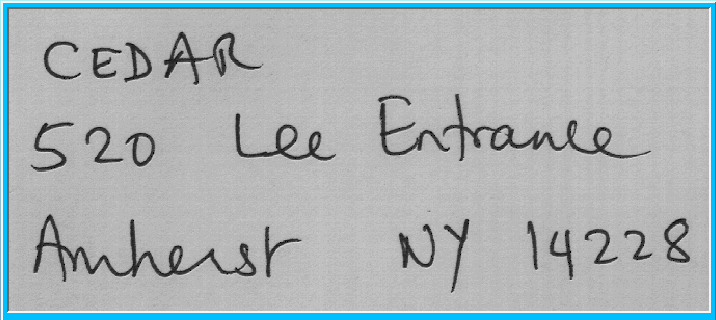 CEDAR
520 Lee Entrance
Amherst NY 14228